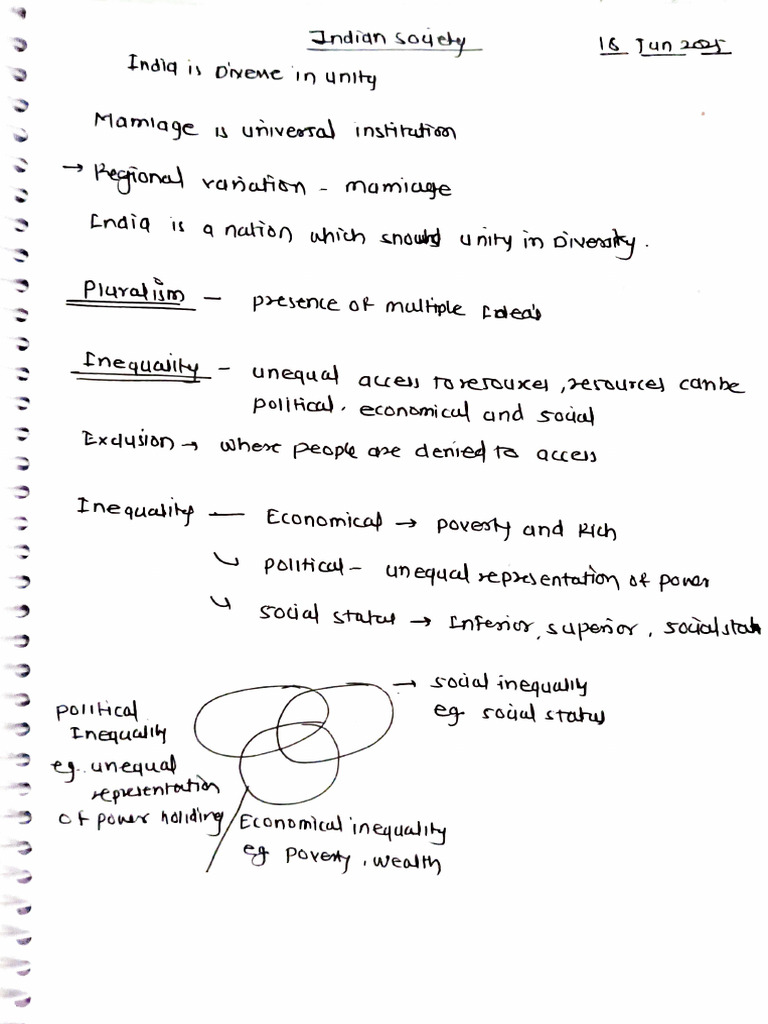 Indian society
16 Jun 2025
India is Diverse in unity
Marriage is universal institution
→ Regional variation - marriage
India is a nation which should unity in Diversity.
Pluralism - presence of multiple Idea's
Inequality - unequal access to resources, resources can be
political. economical and social
Exclusion → where people are denied to access
Inequality — Economical → poverty and Rich
political - unequal representation of power
social status → Inferior, superior, social
→ social inequality
eg social status
political
Inequality
eg. unequal
representation
of power holiding
Economical inequality
eg poverty, wealth